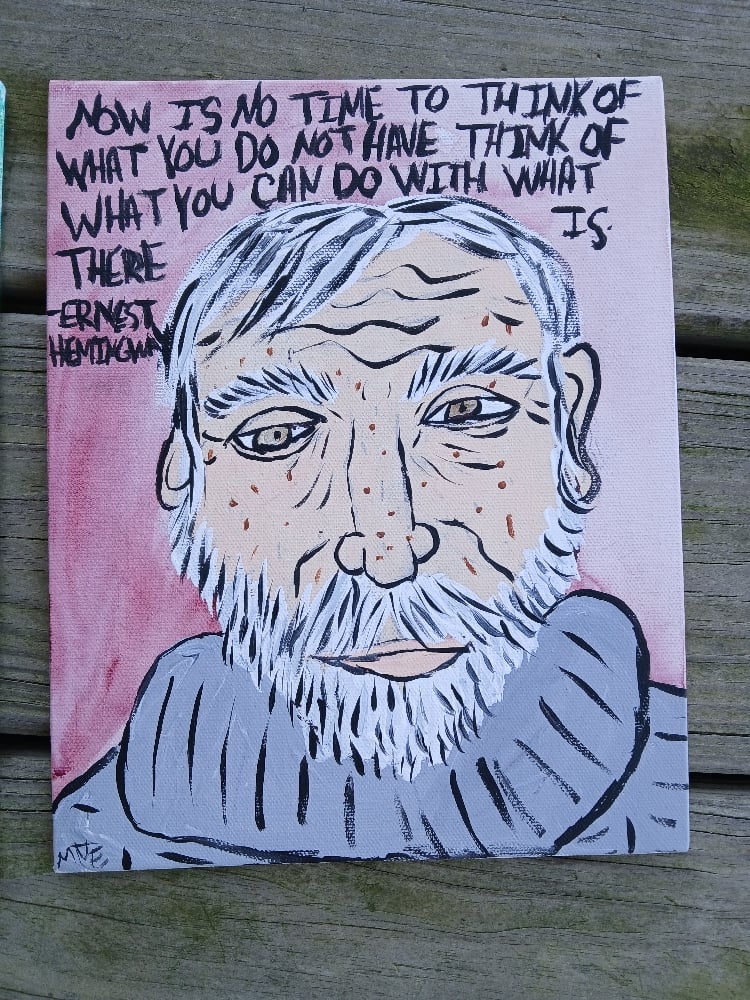 NOW IS NO TIME TO THINK OF
WHAT YOU DO NOT HAVE THINK OF
WHAT YOU CAN DO WITH WHAT
IS.
THERE
-ERNEST
HEMINGWAY
MVE